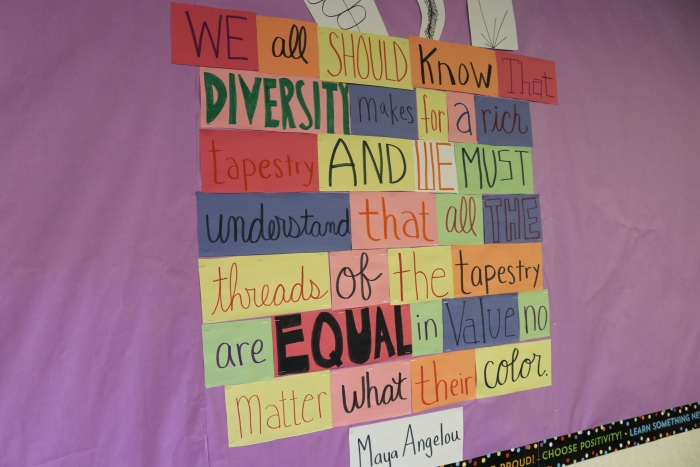 WE all SHOULD Know That
DIVERSITY makes for a rich
tapestry AND WE MUST
understand that all THE
threads of the tapestry
are EQUAL in Value no
Matter what their color.
Maya Angelou
PROUD! · CHOOSE POSITIVITY! · LEARN SOMETHING NE